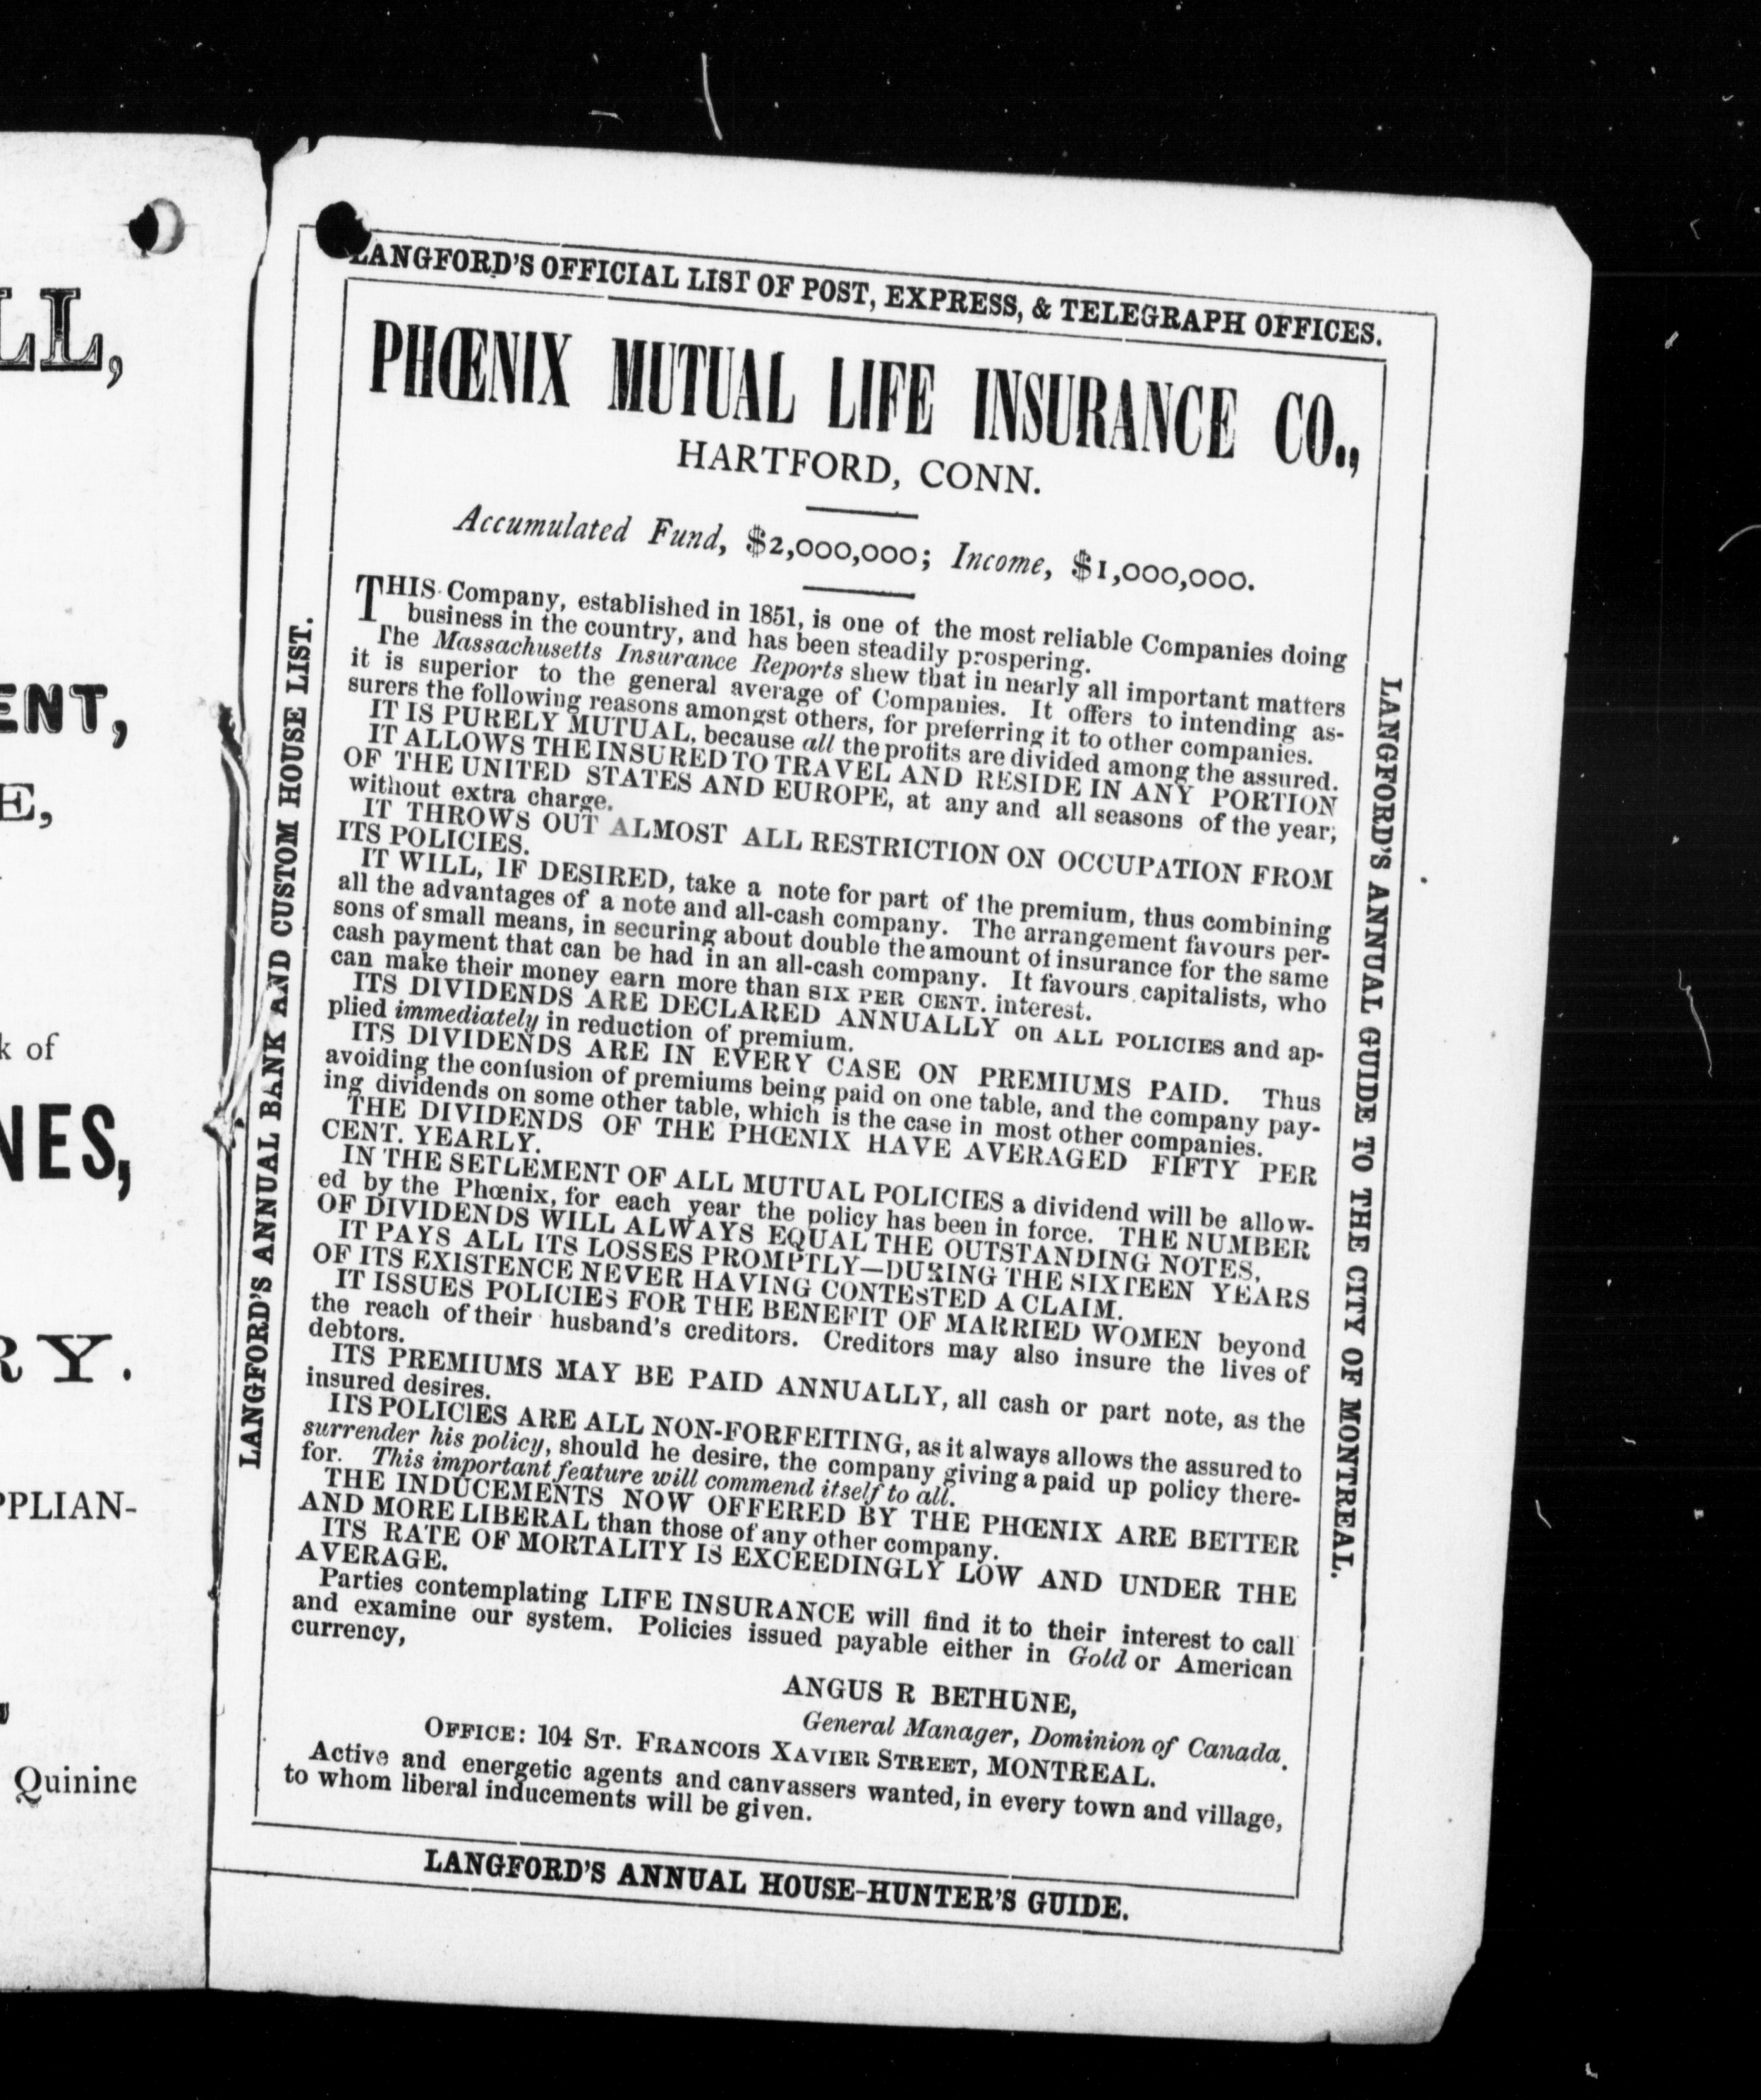 LL,
ENT,
E,
k of
NES,
RY.
PPLIAN-
Quinine
LANGFORD'S OFFICIAL LIST OF POST, EXPRESS, & TELEGRAPH OFFICES.
LANGFORD'S ANNUAL BANK AND CUSTOM HOUSE LIST.
PHŒNIX MUTUAL LIFE INSURANCE CO.,
HARTFORD, CONN.
Accumulated Fund, $2,000,000; Income, $1,000,000.
THIS Company, established in 1851, is one of the most reliable Companies doing
business in the country, and has been steadily prospering.
The Massachusetts Insurance Reports shew that in nearly all important matters
it is superior to the general average of Companies. It offers to intending as-
surers the following reasons amongst others, for preferring it to other companies.
IT IS PURELY MUTUAL, because all the profits are divided among the assured.
IT ALLOWS THE INSURED TO TRAVEL AND RESIDE IN ANY PORTION
OF THE UNITED STATES AND EUROPE, at any and all seasons of the year,
without extra charge.
IT THROWS OUT ALMOST ALL RESTRICTION ON OCCUPATION FROM
ITS POLICIES.
IT WILL, IF DESIRED, take a note for part of the premium, thus combining
all the advantages of a note and all-cash company. The arrangement favours per-
sons of small means, in securing about double the amount of insurance for the same
cash payment that can be had in an all-cash company. It favours capitalists, who
can make their money earn more than SIX PER CENT. interest.
ITS DIVIDENDS ARE DECLARED ANNUALLY on ALL POLICIES and ap-
plied immediately in reduction of premium.
ITS DIVIDENDS ARE IN EVERY CASE ON PREMIUMS PAID. Thus
avoiding the confusion of premiums being paid on one table, and the company pay-
ing dividends on some other table, which is the case in most other companies.
THE DIVIDENDS OF THE PHŒNIX HAVE AVERAGED FIFTY PER
CENT. YEARLY.
IN THE SETLEMENT OF ALL MUTUAL POLICIES a dividend will be allow-
ed by the Phœnix, for each year the policy has been in force. THE NUMBER
OF DIVIDENDS WILL ALWAYS EQUAL THE OUTSTANDING NOTES.
IT PAYS ALL ITS LOSSES PROMPTLY—DURING THE SIXTEEN YEARS
OF ITS EXISTENCE NEVER HAVING CONTESTED A CLAIM.
IT ISSUES POLICIES FOR THE BENEFIT OF MARRIED WOMEN beyond
the reach of their husband's creditors. Creditors may also insure the lives of
debtors.
ITS PREMIUMS MAY BE PAID ANNUALLY, all cash or part note, as the
insured desires.
ITS POLICIES ARE ALL NON-FORFEITING, as it always allows the assured to
surrender his policy, should he desire, the company giving a paid up policy there-
for. This important feature will commend itself to all.
THE INDUCEMENTS NOW OFFERED BY THE PHŒNIX ARE BETTER
AND MORE LIBERAL than those of any other company.
ITS RATE OF MORTALITY IS EXCEEDINGLY LOW AND UNDER THE
AVERAGE.
Parties contemplating LIFE INSURANCE will find it to their interest to call
and examine our system. Policies issued payable either in Gold or American
currency,
ANGUS R BETHUNE,
General Manager, Dominion of Canada.
OFFICE: 104 ST. FRANCOIS XAVIER STREET, MONTREAL.
Active and energetic agents and canvassers wanted, in every town and village,
to whom liberal inducements will be given.
LANGFORD'S ANNUAL GUIDE TO THE CITY OF MONTREAL.
LANGFORD'S ANNUAL HOUSE-HUNTER'S GUIDE.